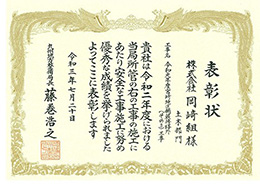 表彰状
株式会社 岡﨑組様
土木部門
工事名
貴社は令和二年度における
当局所管の右の工事の施工に
あたり安全な工事施工に努め
優秀な成績を挙げられました
よってここに表彰します
令和三年七月二十日
九州地方整備局長
藤巻浩之